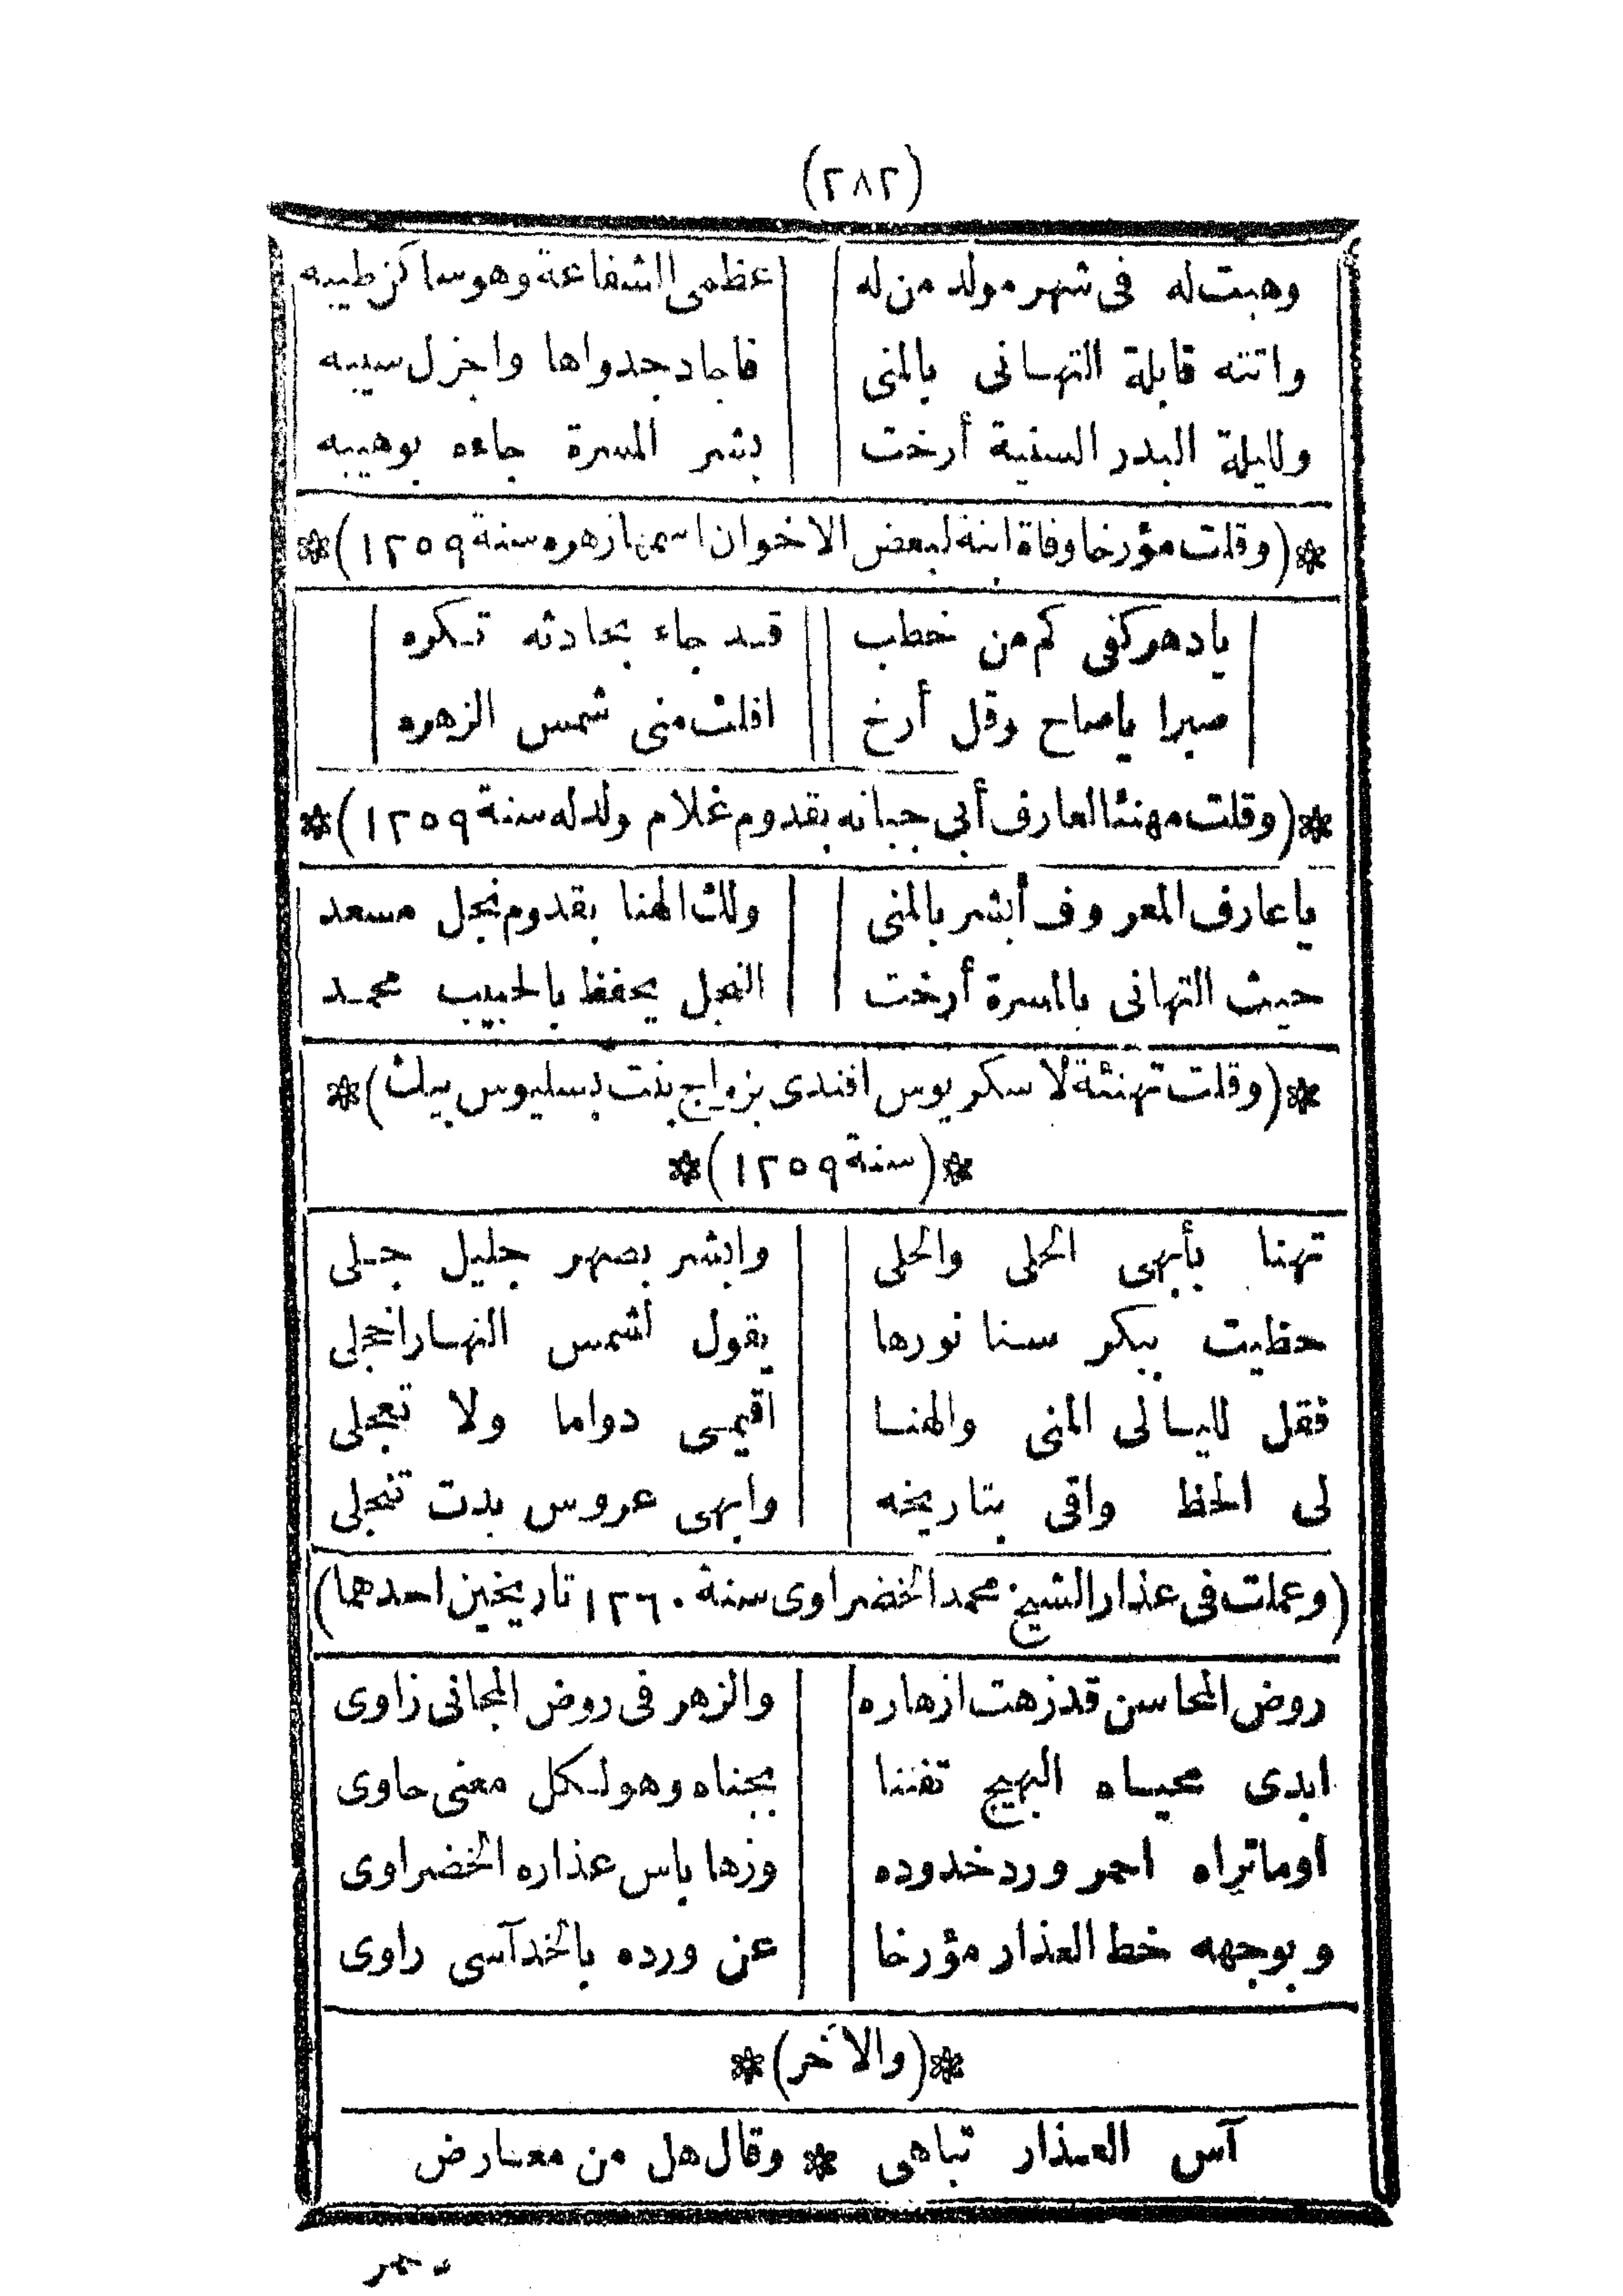 (٢٨٢)
وهبت له فى شهر مولد من له عظمى الشفاعة وهو ساكن طيبه
واتته قابلة التهانى بالمنى فاجاد جدواها واجزل سيبه
ولليلة البدر السنية أرخت بشر المسرة جاءه بوهيبه
*(وقلت مؤرخا وفاة ابنة لبعض الاخوان اسمها زهره سنة ١٢٥٩)*
يا دهر كفى كم من خطب قد جاء بحادثه تكره
صبرا يا صاح وقل أرخ افلت منى شمس الزهره
*(وقلت مهنئا العارف أبى جبانه بقدوم غلام ولد له سنة ١٢٥٩)*
يا عارف المعروف أبشر بالمنى ولك الهنا بقدوم نجل مسعد
حيث التهانى بالمسرة أرخت النجل يحفظ بالحبيب محمد
*(وقلت تهنئة لاسكر يوس افندى بزواج بنت بسليوس بيك)*
*(سنة ١٢٥٩)*
تهنا بأبهى الحلى والحلى وابشر بصهر جليل جلى
حظيت ببكر سنا نورها يقول لشمس النهار اخجلى
فقل لليالى المنى والهنا اقيمى دواما ولا تعجلى
لى الحظ وافى بتاريخه وابهى عروس بدت تنجلى
(وعملت فى عذار الشيخ محمد الخضراوى سنة ١٢٦٠ تاريخين احدهما)
روض المحاسن قد زهت ازهاره والزهر فى روض المجانى زاوى
ابدى محياه البهيج تفننا بجناه وهو لكل معنى حاوى
اوماتراه احمر ورد خدوده وزها باس عذاره الخضراوى
وبوجهه خط العذار مؤرخا عن ورده بالخد آسى راوى
*(والآخر)*
آس العذار تباهى * وقال هل من معارض